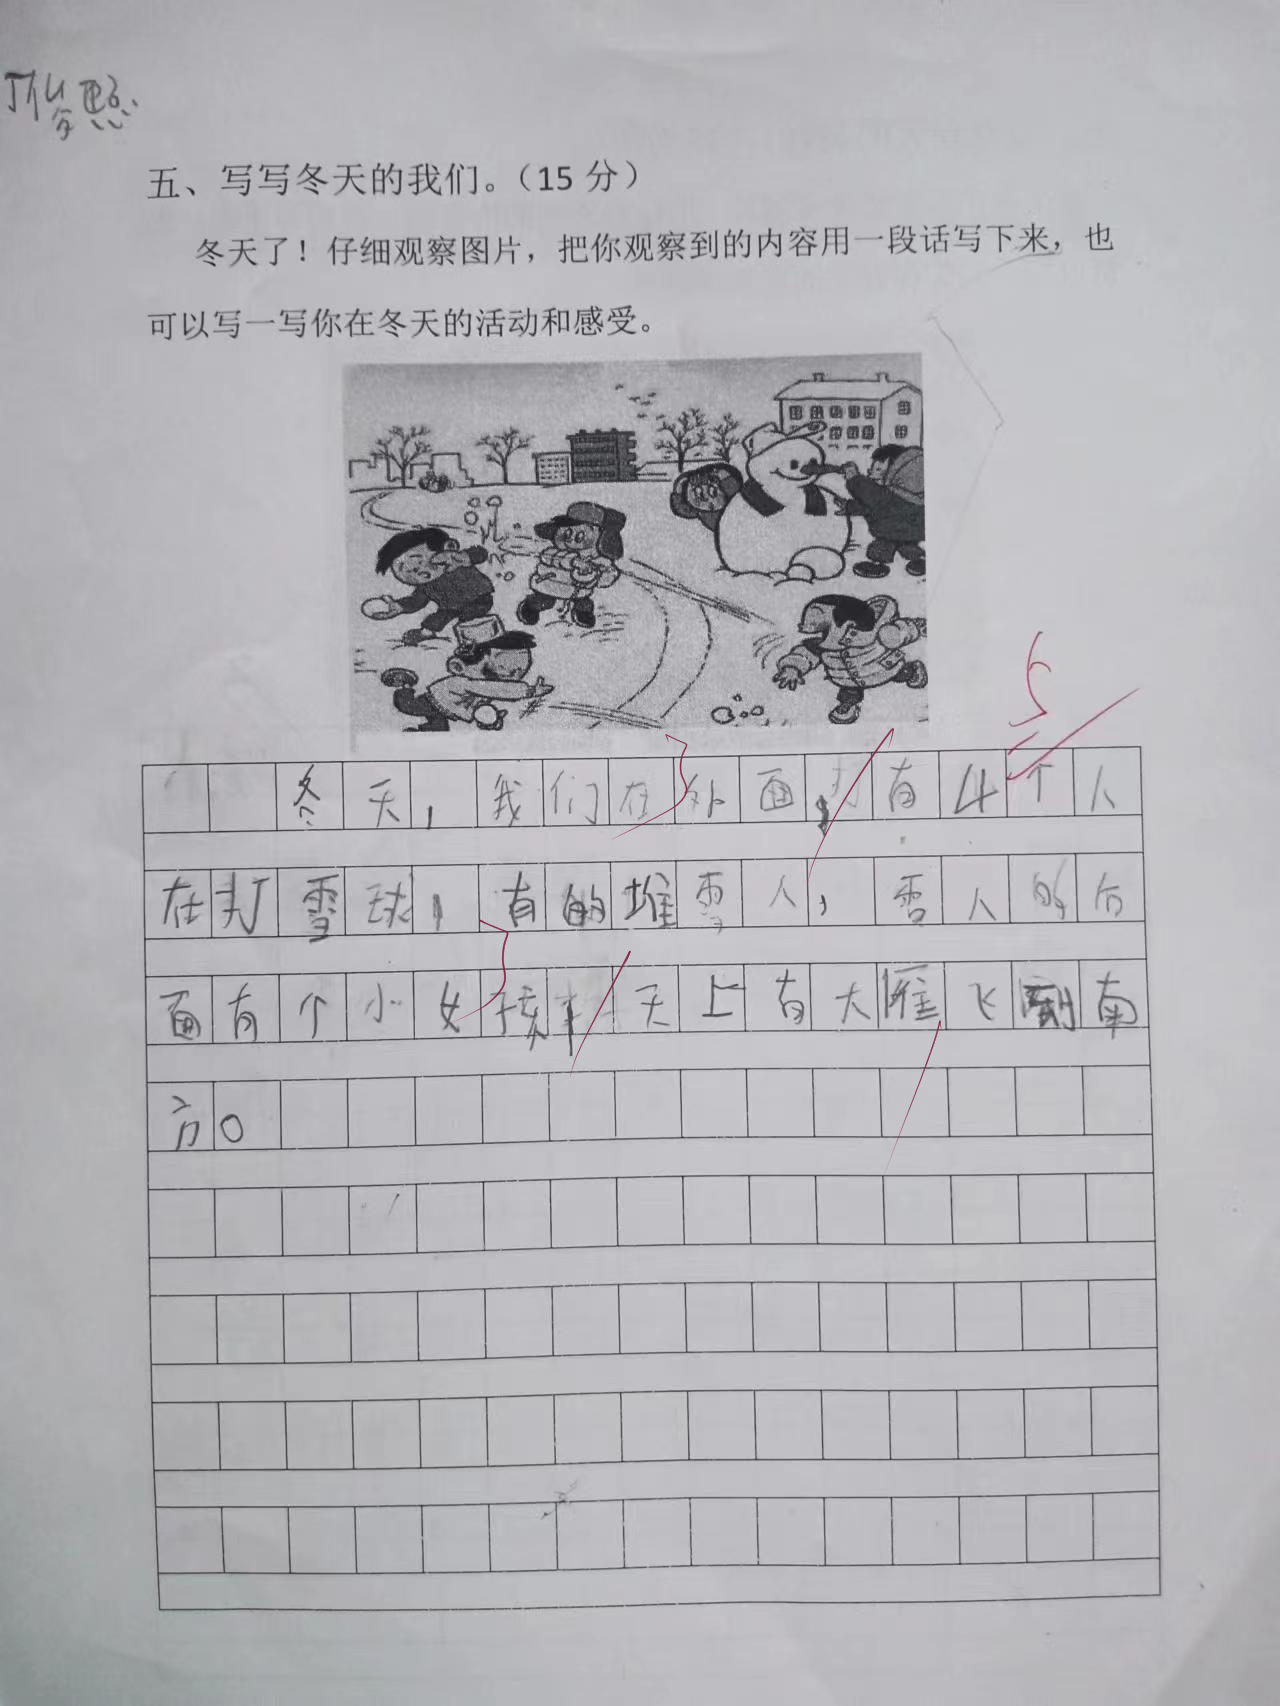 五、写写冬天的我们。（15 分）
冬天了！仔细观察图片，把你观察到的内容用一段话写下来，也
可以写一写你在冬天的活动和感受。
5
冬天，我们在外面，有4个人
在打雪球，有的堆雪人，雪人的后
面有个小女孩 天上有大雁飞到南
方。